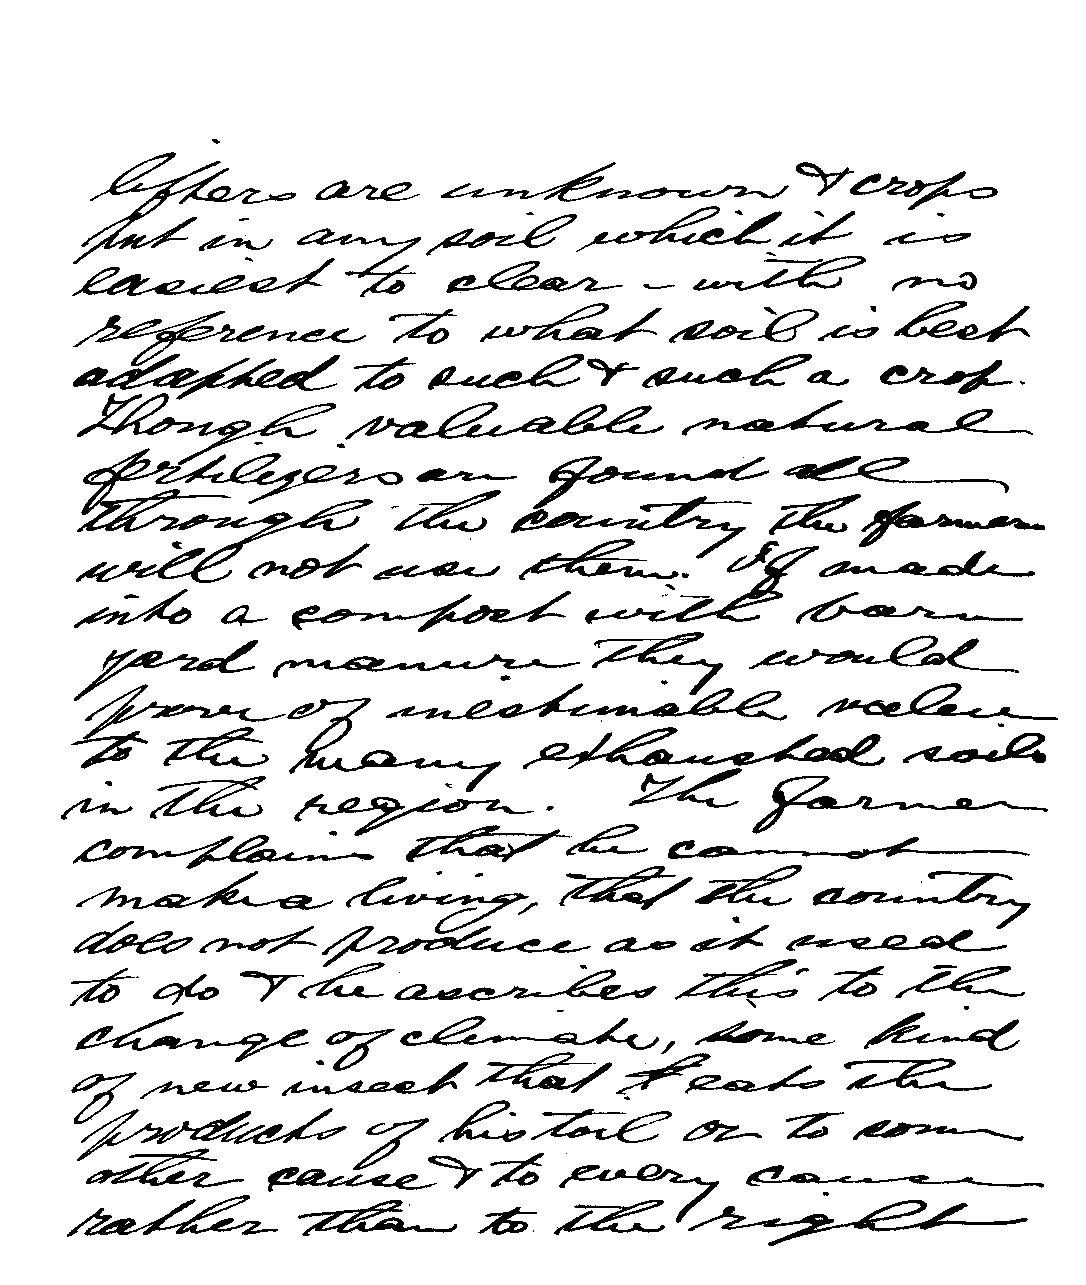 lifters are unknown & crops
put in any soil which it is
easiest to clear - with no
reference to what soil is best
adapted to such & such a crop.
Though valuable natural
fertilizers are found all
through the country the farmers
will not use them. If made
into a compost with barn
yard manure they would
prove of inestimable value
to the many exhausted soils
in the region. The farmer
complains that he cannot
make a living, that the country
does not produce as it used
to do & he ascribes this to the
change of climate, some kind
of new insect that eats the
products of his toil or to some
other cause & to every cause
rather than to the right